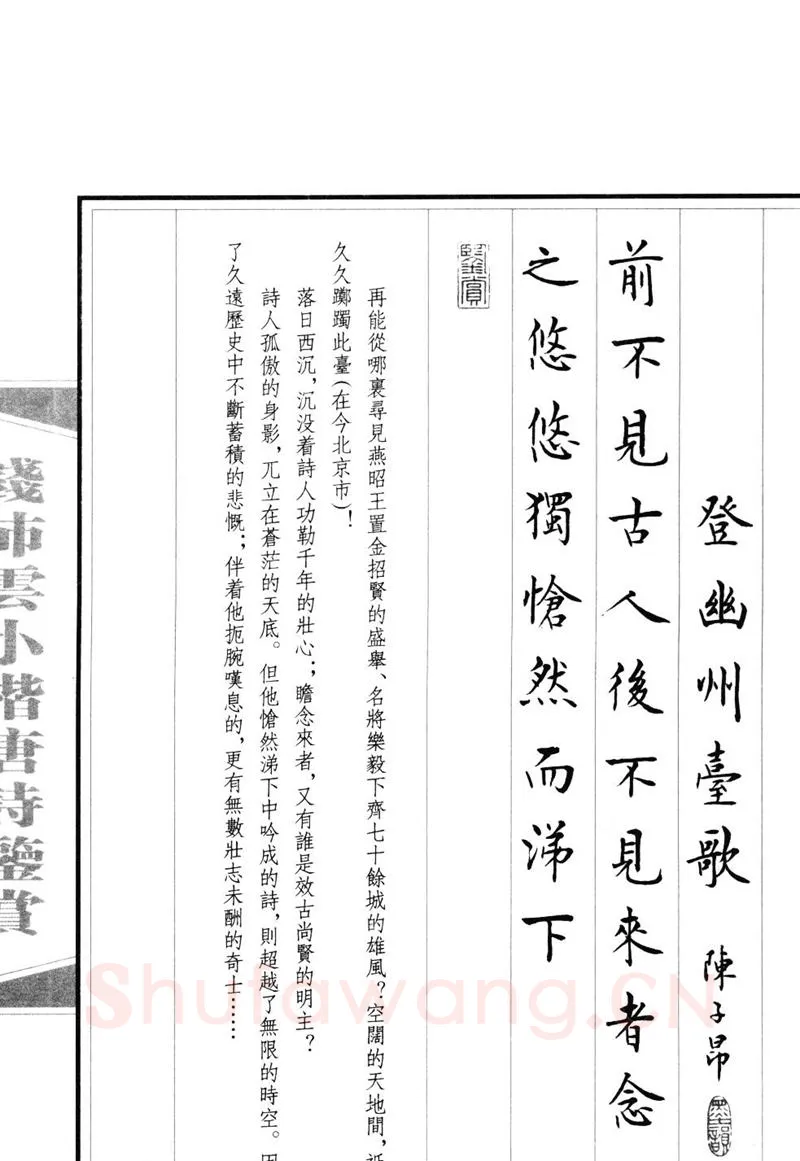 登幽州臺歌 陳子昂
前不見古人後不見來者念
之悠悠獨愴然而涕下
鑒賞
再能從哪裏尋見燕昭王置金招賢的盛舉、名將樂毅下齊七十餘城的雄風？空闊的天地間，
久久躑躅此臺(在今北京市)！
落日西沉，沉没着詩人功勒千年的壯心；瞻念來者，又有誰是效古尚賢的明主？
詩人孤傲的身影，兀立在蒼茫的天底。但他愴然涕下中吟成的詩，則超越了無限的時空。
了久遠歷史中不斷蓄積的悲慨；伴着他扼腕嘆息的，更有無數壯志未酬的奇士……
錢沛雲小楷唐詩鑒賞
Shufawang.CN